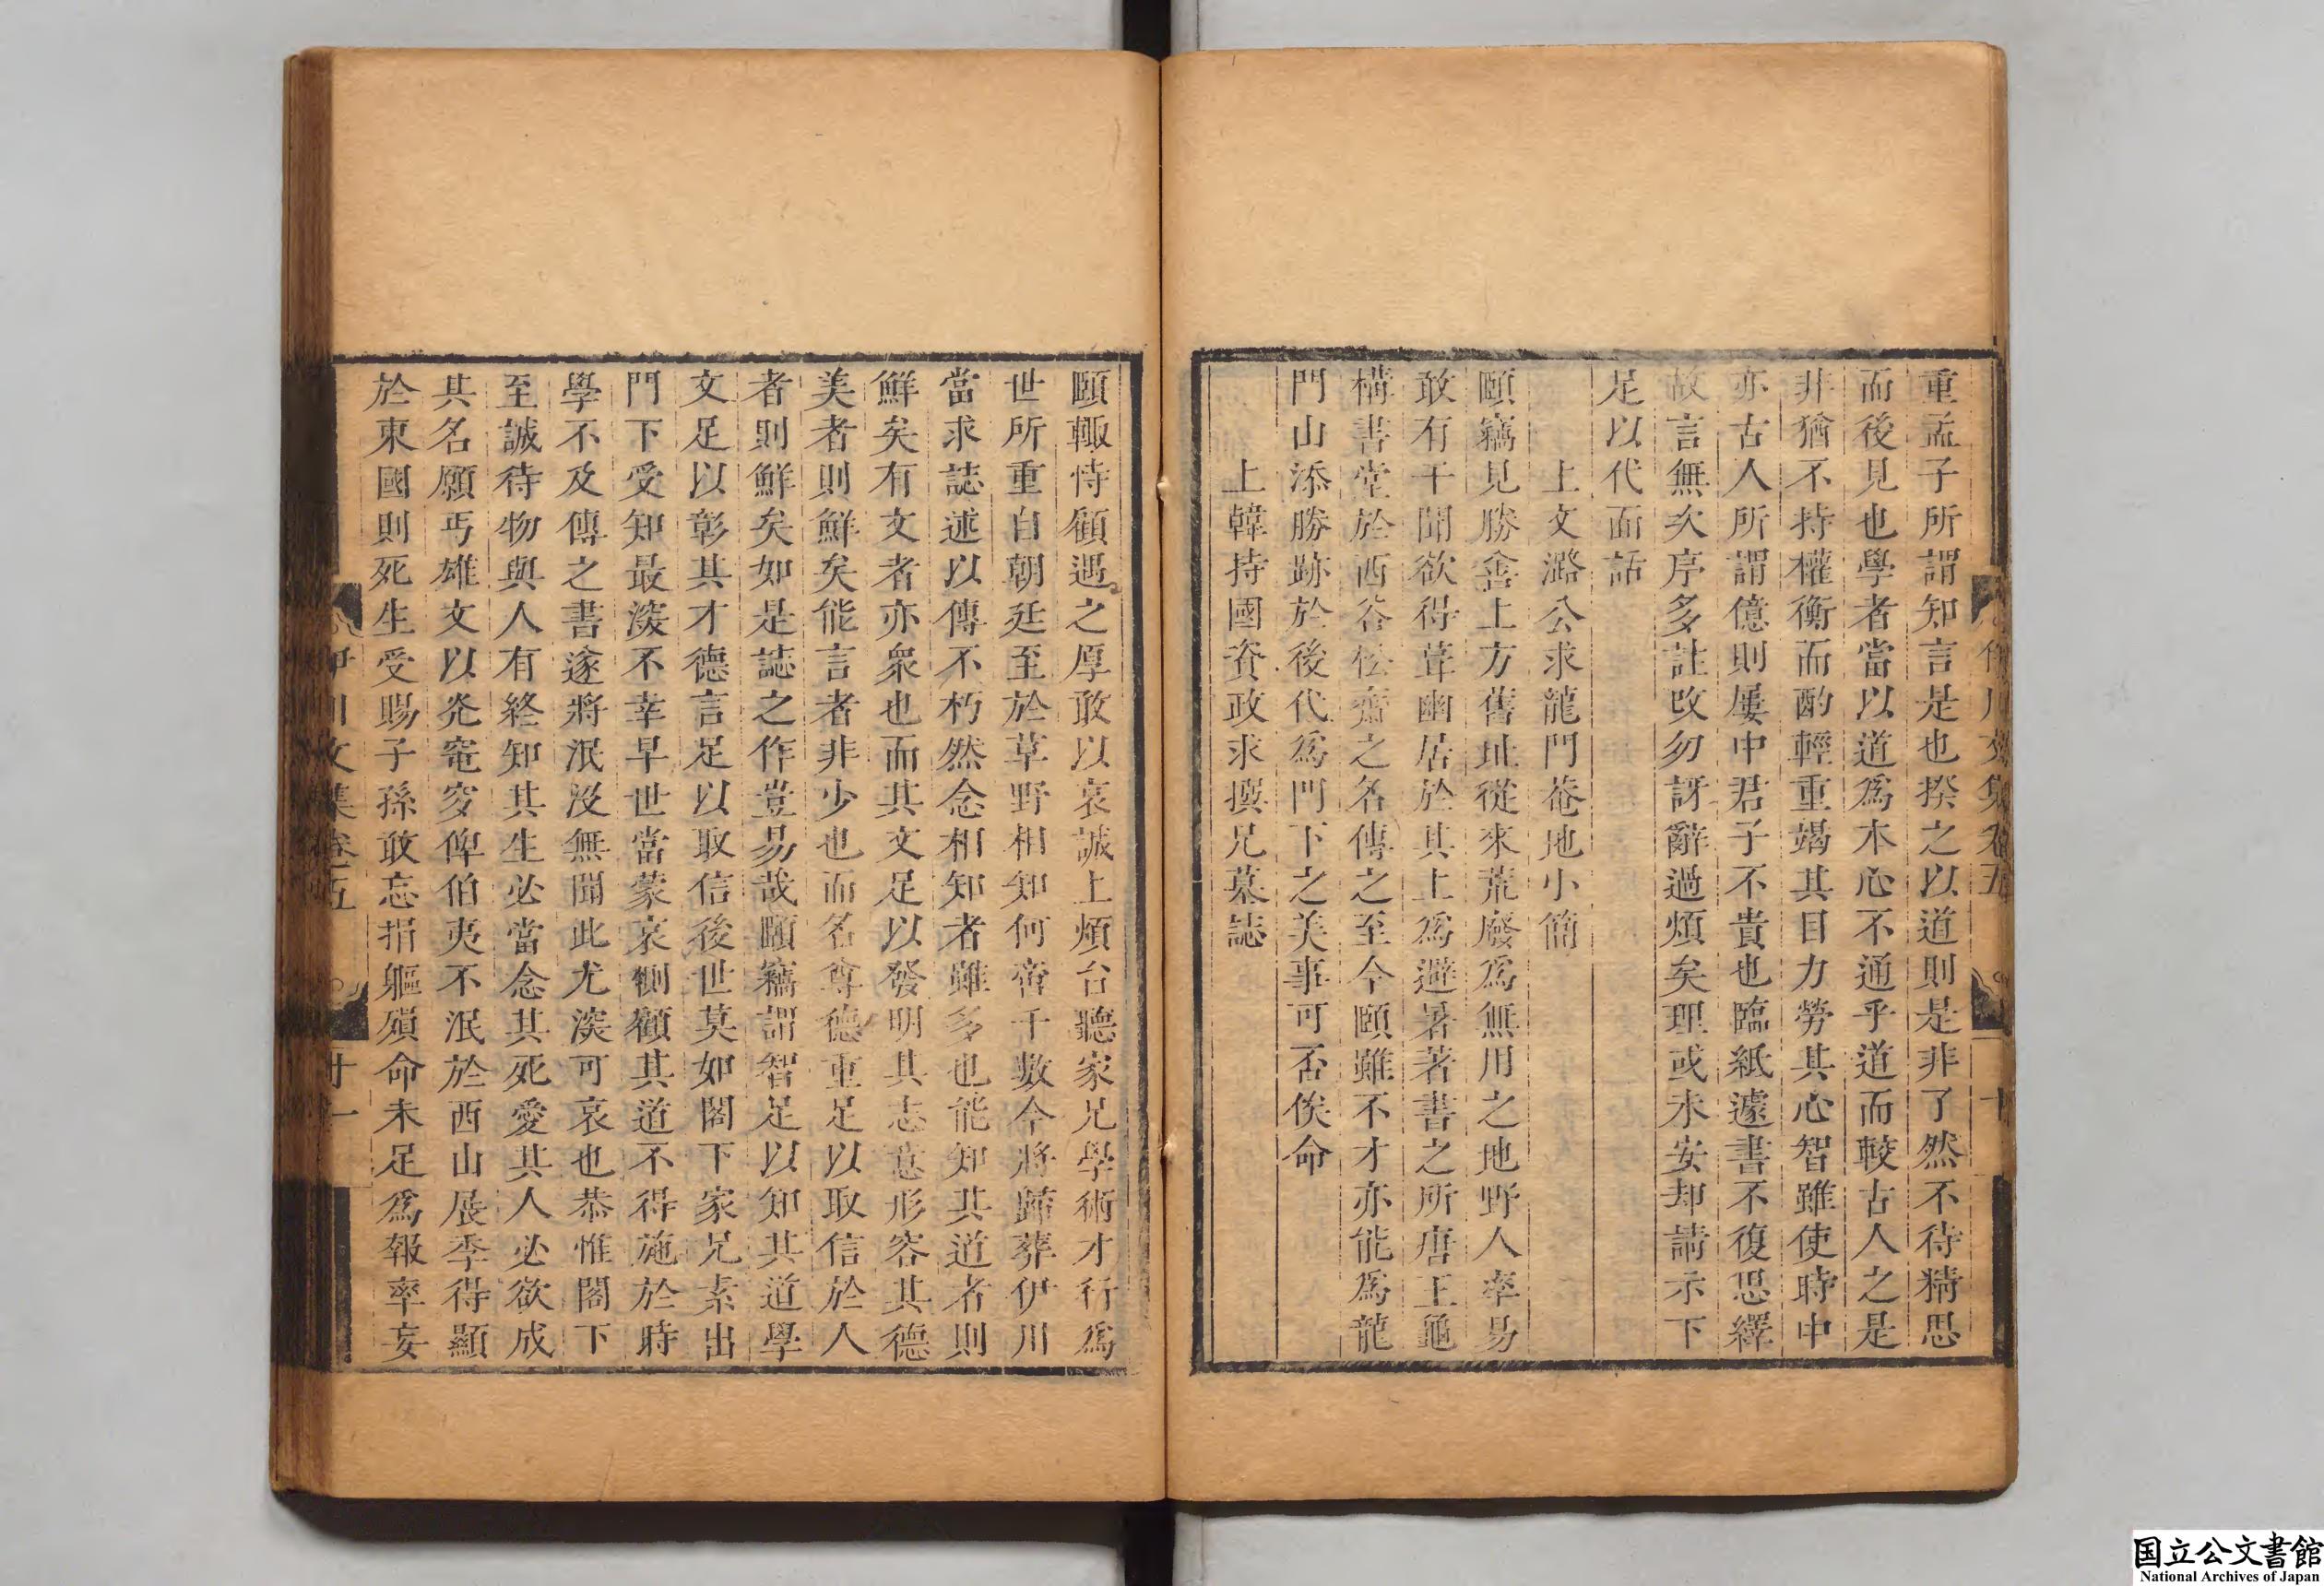 重孟子所謂知言是也揆之以道則是非了然不待精思
而後見也學者當以道爲本心不通乎道而較古人之是
非猶不持權衡而酌輕重竭其目力勞其心智雖使時中
亦古人所謂億則屢中君子不貴也臨紙遽書不復思繹
故言無次序多註改勿訝辭過煩矣理或未安却請示下
足以代面話
上文潞公求龍門菴地小簡
頤竊見勝善上方舊址從來荒廢爲無用之地野人率易
敢有干聞欲得葺幽居於其上爲避暑著書之所唐王龜
構書堂於西谷松齋之名傳之至今頤雖不才亦能爲龍
門山添勝跡於後代爲門下之美事可否俟命
上韓持國資政求撰兄墓誌
頤輙恃顧遇之厚敢以哀誠上煩台聽家兄學術才行爲
世所重自朝廷至於草野相知何啻千數今將歸葬伊川
當求誌述以傳不朽然念相知者雖多也能知其道者則
鮮矣有文者亦衆也而其文足以發明其志意形容其德
美者則鮮矣能言者非少也而名尊德重足以取信於人
者則鮮矣如是誌之作豈易哉頤竊謂智足以知其道學
文足以彰其才德言足以取信後世莫如閣下家兄素出
門下受知最深不幸早世當蒙哀惻顧其道不得施於時
學不及傳之書遂將泯沒無聞此尤深可哀也恭惟閣下
至誠待物與人有終知其生必當念其死愛其人必欲成
其名願丐雄文以光窀穸俾伯夷不泯於西山展季得顯
於東國則死生受賜子孫敢忘捐軀殞命未足爲報率妄
伊川文集卷五
十一
国立公文書館
National Archives of Japan